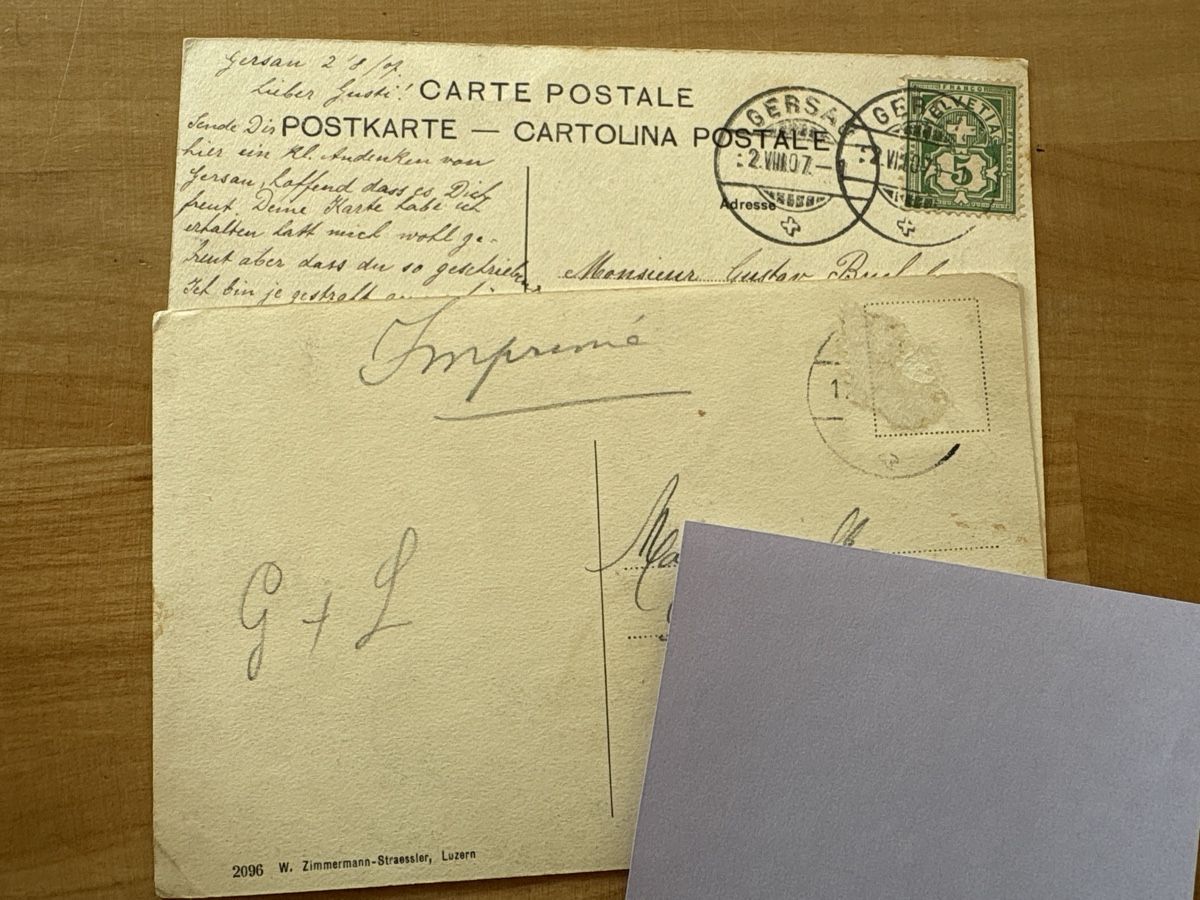 Gersau 2 8/07
Lieber Gusti!
CARTE POSTALE
POSTKARTE — CARTOLINA POSTALE
Sende Dir
hier ein kl. Andenken von
Gersau, hoffend dass es Dich
freut. Deine Karte habe ich
erhalten hatt mich wohl ge-
freut aber dass du so geschrieben
Ich bin je
GERSAU
2.VIII.07.–1
GER
2.VIII.07
FRANCO
HELVETIA
5
Adresse
Monsieur Gustav
Imprimé
1
G + L
2096 W. Zimmermann-Straessler, Luzern